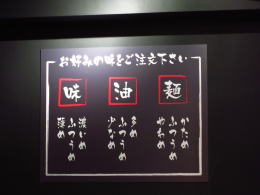 お好みの味をご注文下さい
麺
かため
ふつうめ
やわめ
油
多め
ふつうめ
少なめ
味
濃いめ
ふつうめ
薄め